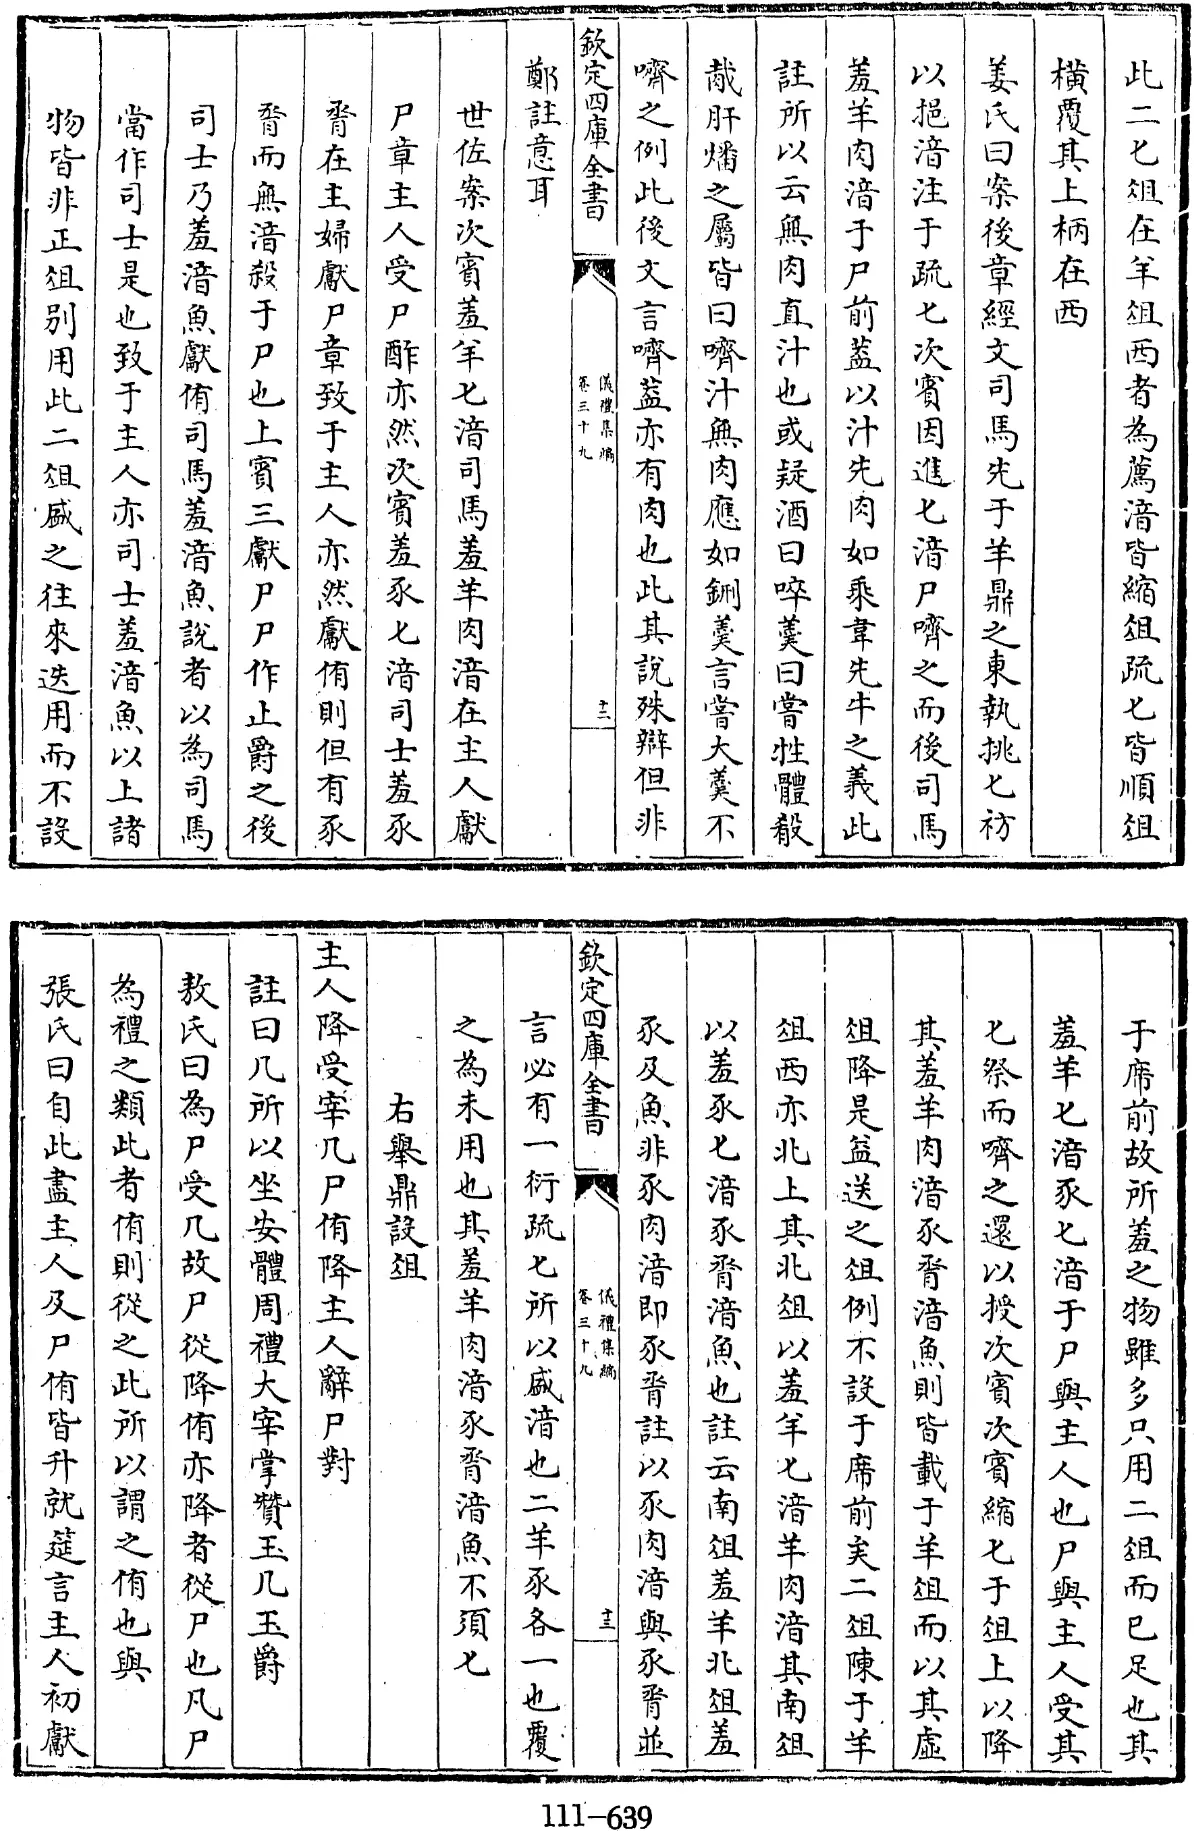 此二匕俎在羊俎西者為薦湆皆縮俎疏匕皆順俎
橫覆其上柄在西
姜氏曰案後章經文司馬先于羊鼎之東執挑匕枋
以挹湆注于疏匕次賓因進匕湆尸嚌之而後司馬
羞羊肉湆于尸前葢以汁先肉如乘韋先牛之義此
註所以云無肉直汁也或疑酒曰啐羹曰嘗牲體殽
胾肝燔之屬皆曰嚌汁無肉應如鉶羹言嘗大羹不
嚌之例此後文言嚌葢亦有肉也此其說殊辯但非
欽定四庫全書
儀禮集編
卷三十九
十二
鄭註意耳
世佐案次賓羞羊匕湆司馬羞羊肉湆在主人獻
尸章主人受尸酢亦然次賓羞豕匕湆司士羞豕
脀在主婦獻尸章致于主人亦然獻侑則但有豕
脀而無湆殺于尸也上賓三獻尸尸作止爵之後
司士乃羞湆魚獻侑司馬羞湆魚說者以為司馬
當作司士是也致于主人亦司士羞湆魚以上諸
物皆非正俎別用此二俎盛之往來迭用而不設
于席前故所羞之物雖多只用二俎而已足也其
羞羊匕湆豕匕湆于尸與主人也尸與主人受其
匕祭而嚌之還以授次賓次賓縮匕于俎上以降
其羞羊肉湆豕脀湆魚則皆載于羊俎而以其虛
俎降是益送之俎例不設于席前矣二俎陳于羊
俎西亦北上其北俎以羞羊匕湆羊肉湆其南俎
以羞豕匕湆豕脀湆魚也註云南俎羞羊北俎羞
豕及魚非豕肉湆即豕脀註以豕肉湆與豕脀並
欽定四庫全書
儀禮集編
卷三十九
十三
言必有一衍疏匕所以盛湆也二羊豕各一也覆
之為未用也其羞羊肉湆豕脀湆魚不須匕
右舉鼎設俎
主人降受宰几尸侑降主人辭尸對
註曰几所以坐安體周禮大宰掌贊玉几玉爵
敖氏曰為尸受几故尸從降侑亦降者從尸也凡尸
為禮之類此者侑則從之此所以謂之侑也與
張氏曰自此盡主人及尸侑皆升就筵言主人初獻
111-639